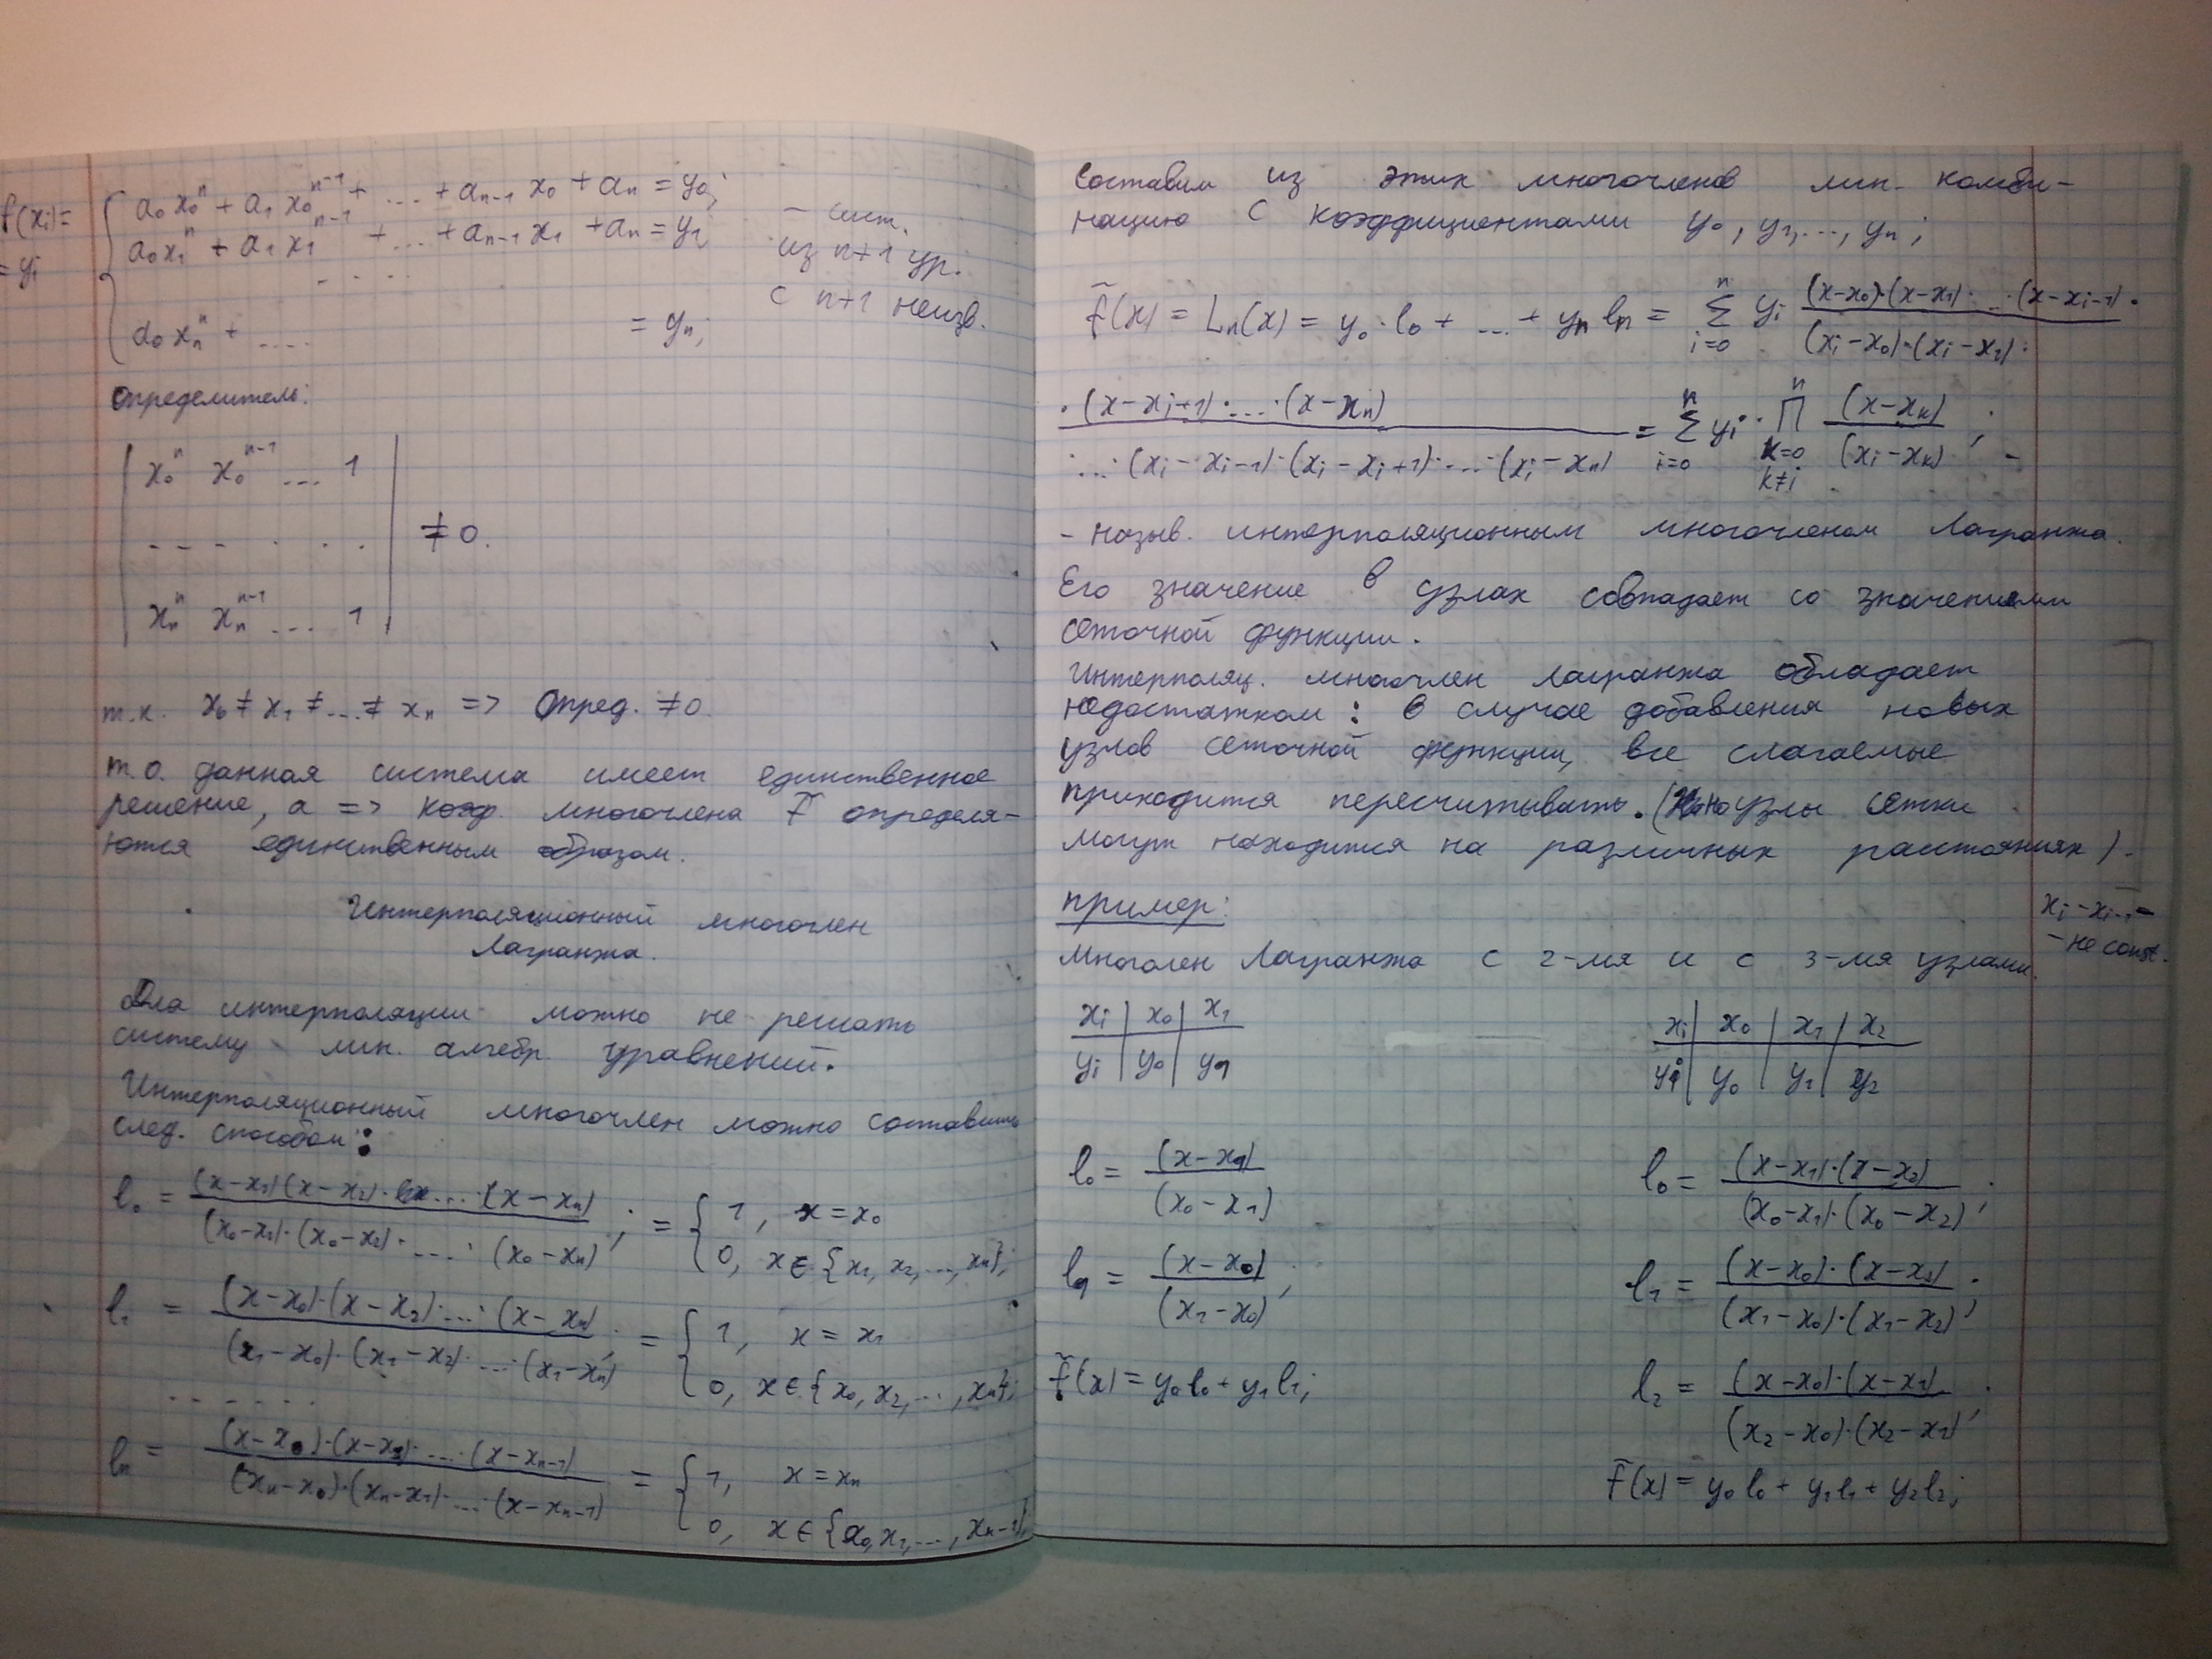 f(xᵢ)=
= yᵢ
a₀x₀ⁿ + a₁x₀ⁿ⁻¹ + ... + aₙ₋₁x₀ + aₙ = y₀;
a₀x₁ⁿ + a₁x₁ⁿ⁻¹ + ... + aₙ₋₁x₁ + aₙ = y₁
. . . .
a₀xₙⁿ + .... = yₙ;
– сист.
из n+1 ур.
с n+1 неизв.
определитель:
x₀ⁿ x₀ⁿ⁻¹ ... 1
- - - . . .
≠ 0.
xₙⁿ xₙⁿ⁻¹ ... 1
т.к. x₀ ≠ x₁ ≠ ... ≠ xₙ => Опред. ≠ 0.
т.о. данная система имеет единственное
решение, а => коэф. многочлена f̃ определя-
ются единственным образом.
Интерполяционный многочлен
Лагранжа.
Для интерполяции можно не решать
систему лин. алгебр. уравнений.
Интерполяционный многочлен можно составить
след. способом:
l₀ = (x-x₁)(x-x₂)·...·(x-xₙ) / (x₀-x₁)·(x₀-x₂)·....·(x₀-xₙ); = { 1, x = x₀
0, x ∈ {x₁, x₂, ..., xₙ};
l₁ = (x-x₀)·(x-x₂)·...·(x-xₙ) / (x₁-x₀)·(x₁-x₂)·...·(x₁-xₙ); = { 1, x = x₁
0, x ∈ {x₀, x₂, ..., xₙ};
- - - - - -
lₙ = (x-x₀)·(x-x₁)·...·(x-xₙ₋₁) / (xₙ-x₀)·(xₙ-x₁)·...·(x-xₙ₋₁) = { 1, x = xₙ
0, x ∈ {x₀, x₁, ..., xₙ₋₁};
Составим из этих многочленов лин. комби-
нацию с коэффициентами y₀, y₁, ..., yₙ;
f̃(x) = Lₙ(x) = y₀·l₀ + ... + yₙlₙ = Σⁿᵢ₌₀ yᵢ (x-x₀)·(x-x₁)·...·(x-xᵢ₋₁)· / (xᵢ-x₀)·(xᵢ-x₁)·
·(x-xᵢ₊₁)·...·(x-xₙ) / ...·(xᵢ-xᵢ₋₁)·(xᵢ-xᵢ₊₁)·...·(xᵢ-xₙ) = Σⁿᵢ₌₀ yᵢ · Πⁿ k=0 k≠i (x-xₖ) / (xᵢ-xₖ); –
- назыв. интерполяционным многочленом Лагранжа.
Его значение в узлах совпадает со значениями
сеточной функции.
Интерполяц. многочлен Лагранжа обладает
недостатком: в случае добавления новых
узлов сеточной функции, все слагаемые
приходится пересчитывать. (Но узлы сетки
могут находится на различных расстояниях).
xᵢ - xᵢ₋₁ –
– не const.
пример:
Многолен Лагранжа с 2-мя и с 3-мя узлами.
xᵢ | x₀ | x₁
yᵢ | y₀ | y₁
l₀ = (x-x₁) / (x₀-x₁)
l₁ = (x-x₀) / (x₁-x₀);
f̃(x) = y₀l₀ + y₁l₁;
xᵢ | x₀ | x₁ | x₂
yᵢ | y₀ | y₁ | y₂
l₀ = (x-x₁)·(x-x₂) / (x₀-x₁)·(x₀-x₂);
l₁ = (x-x₀)·(x-x₂) / (x₁-x₀)·(x₁-x₂);
l₂ = (x-x₀)·(x-x₁) / (x₂-x₀)·(x₂-x₁);
f̃(x) = y₀l₀ + y₁l₁ + y₂l₂;